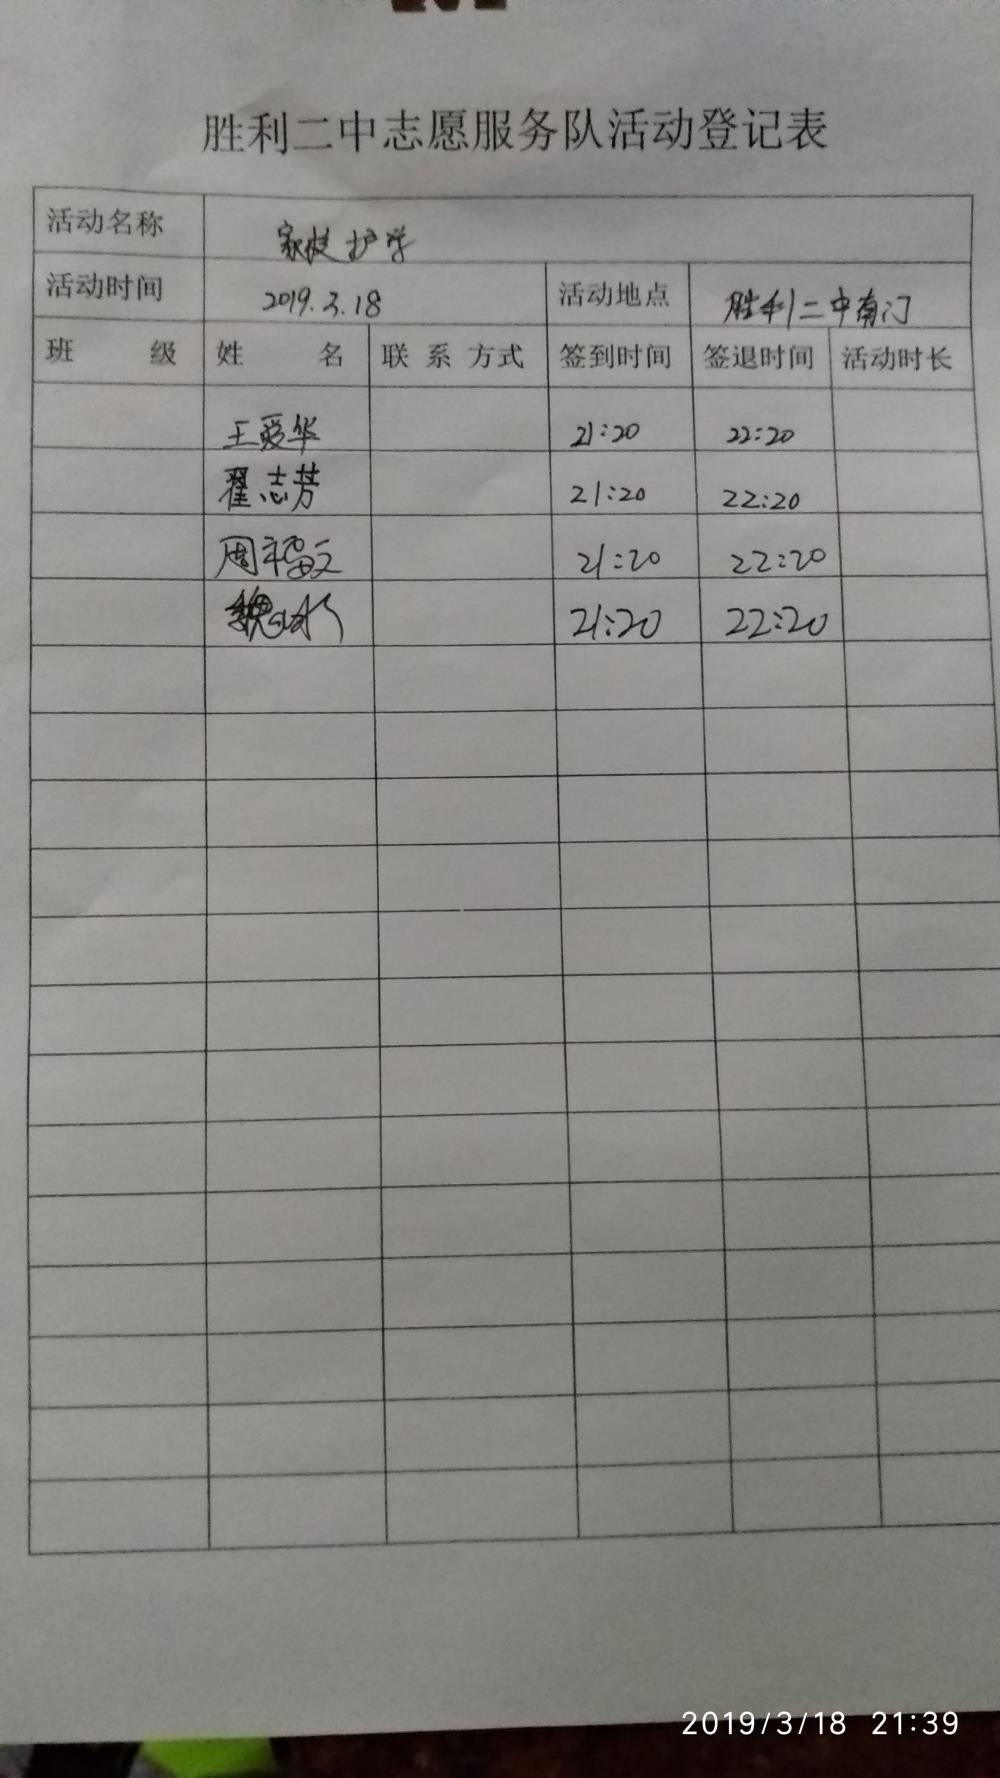 胜利二中志愿服务队活动登记表
活动名称 家校护学
活动时间 2019.3.18 活动地点 胜利二中南门
班 级 姓 名 联 系 方式 签到时间 签退时间 活动时长
王爱华 21:20 22:20
翟志芳 21:20 22:20
周福文 21:20 22:20
魏 21:20 22:20
2019/3/18 21:39